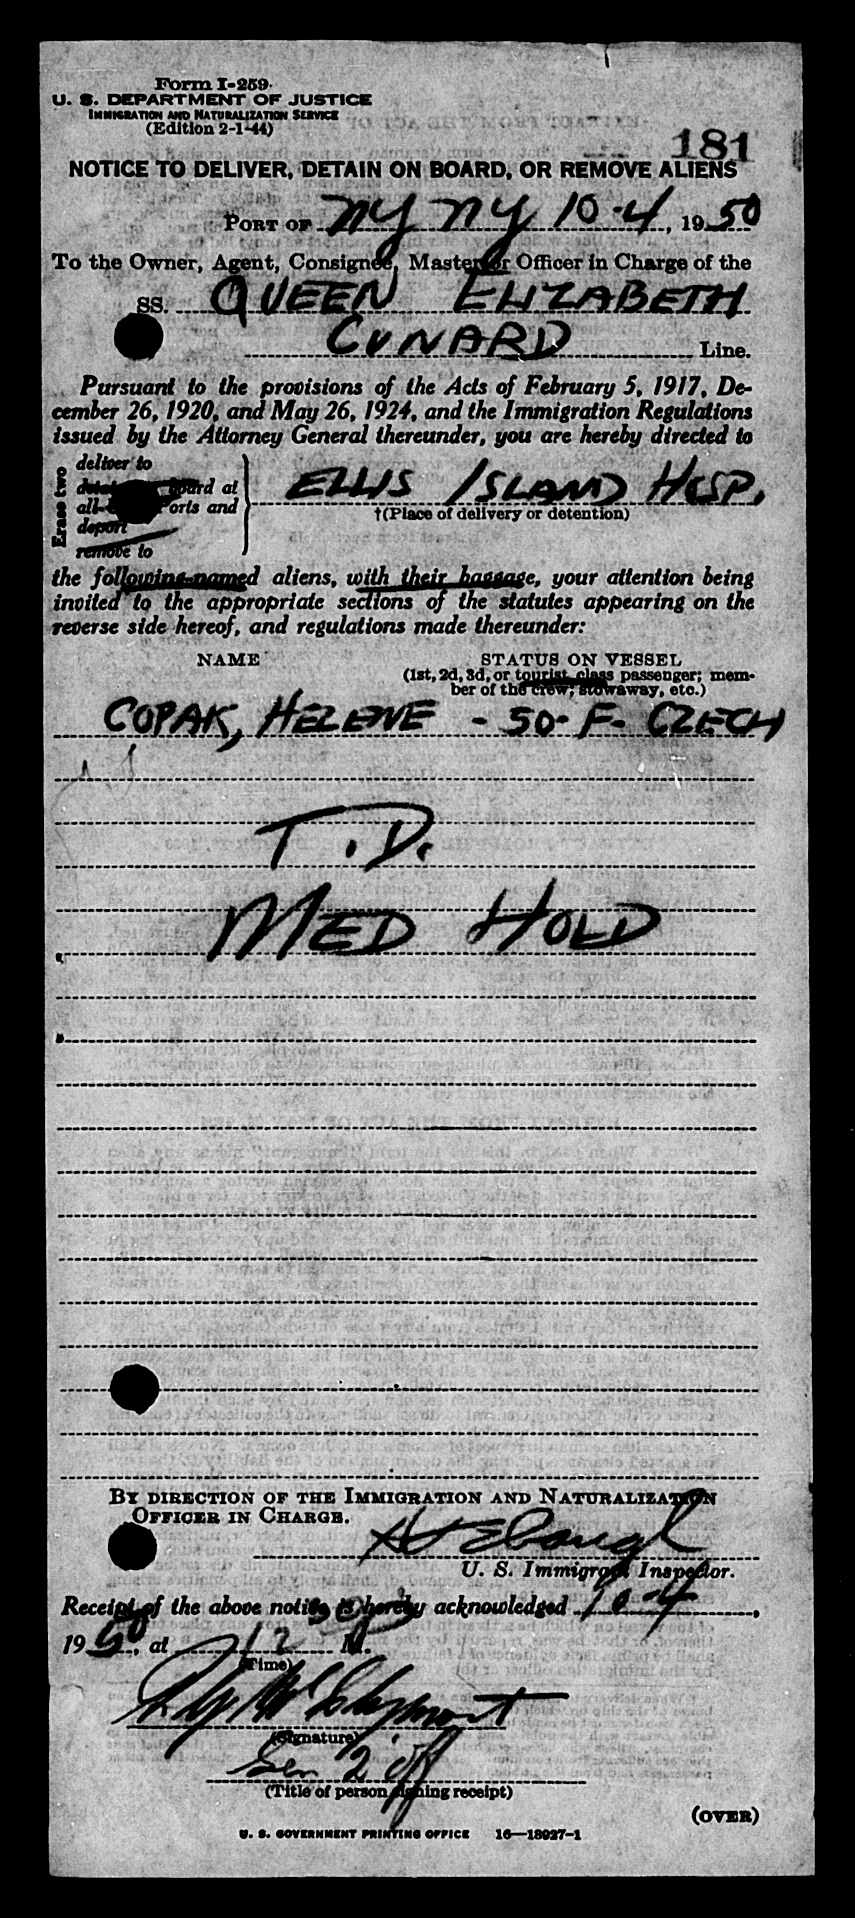 Form I-259
U. S. DEPARTMENT OF JUSTICE
IMMIGRATION AND NATURALIZATION SERVICE
(Edition 2-1-44)
181
NOTICE TO DELIVER, DETAIN ON BOARD, OR REMOVE ALIENS
PORT OF NY NY 10-4, 1950
To the Owner, Agent, Consignee, Master or Officer in Charge of the
SS. QUEEN ELIZABETH
CUNARD Line.
Pursuant to the provisions of the Acts of February 5, 1917, De-
cember 26, 1920, and May 26, 1924, and the Immigration Regulations
issued by the Attorney General thereunder, you are hereby directed to
Erase two
deliver to
board at
all ports and
deport
remove to
ELLIS ISLAND HOSP.
†(Place of delivery or detention)
the following-named aliens, with their baggage, your attention being
invited to the appropriate sections of the statutes appearing on the
reverse side hereof, and regulations made thereunder:
NAME STATUS ON VESSEL
(1st, 2d, 3d, or tourist class passenger; mem-
ber of the crew; stowaway, etc.)
COPAK, HELENE - 50- F- CZECH
T.D.
MED HOLD
BY DIRECTION OF THE IMMIGRATION AND NATURALIZATION
OFFICER IN CHARGE.
U. S. Immigrant Inspector.
Receipt of the above notice is hereby acknowledged 10-4,
1950, at 12 M.
(Time)
(Signature)
Sen 2 off
(Title of person signing receipt)
(OVER)
U. S. GOVERNMENT PRINTING OFFICE 16—18927-1